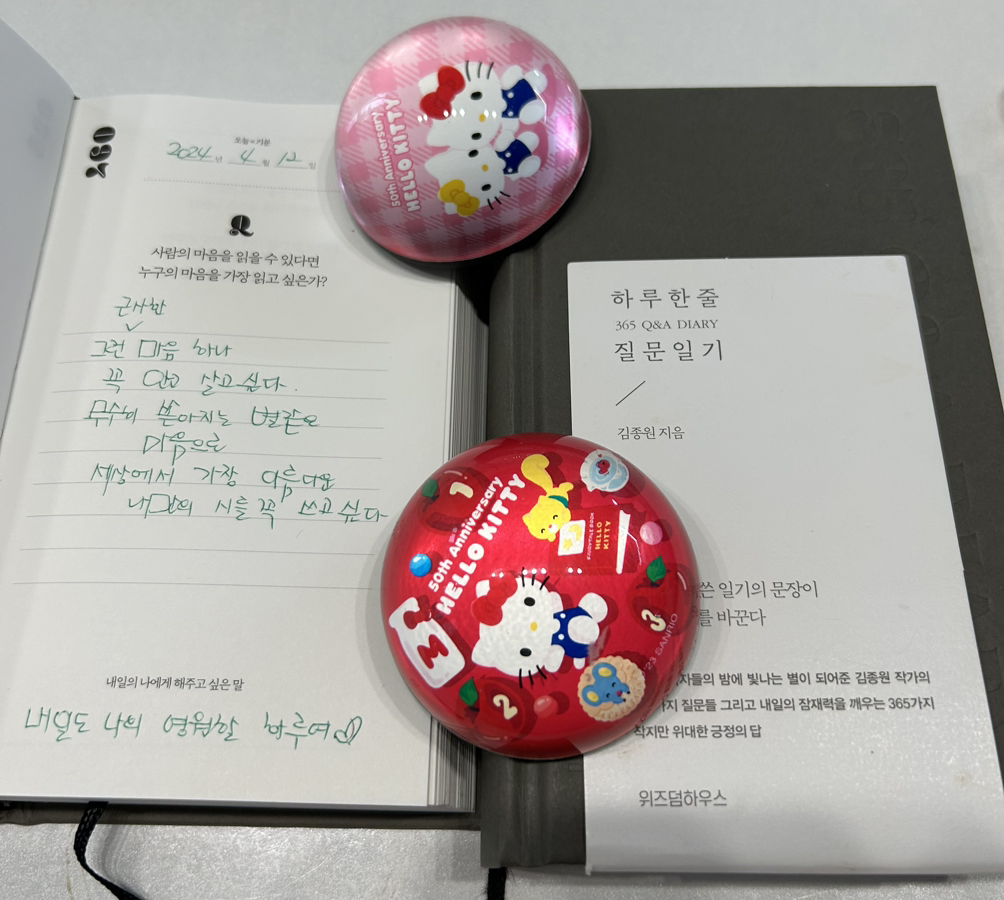 365
오늘의 기분
2024년 4월 12일
Q
사람의 마음을 읽을 수 있다면
누구의 마음을 가장 읽고 싶은가?
근사한
그런 마음 하나
꼭 안고 살고 싶다.
무수히 쏟아지는 별같은
마음으로
세상에서 가장 아름다운
나만의 시를 꼭 쓰고 싶다
내일의 나에게 해주고 싶은 말
내일도 나의 영원할 하루여
50th Anniversary
HELLO KITTY
하루 한 줄
365 Q&A DIARY
질문 일기
김종원 지음
50th Anniversary
HELLO KITTY
HELLO
KITTY
1
2
3
SANRIO
쓴 일기의 문장이
를 바꾼다
자들의 밤에 빛나는 별이 되어준 김종원 작가의
가지 질문들 그리고 내일의 잠재력을 깨우는 365가지
작지만 위대한 긍정의 답
위즈덤하우스